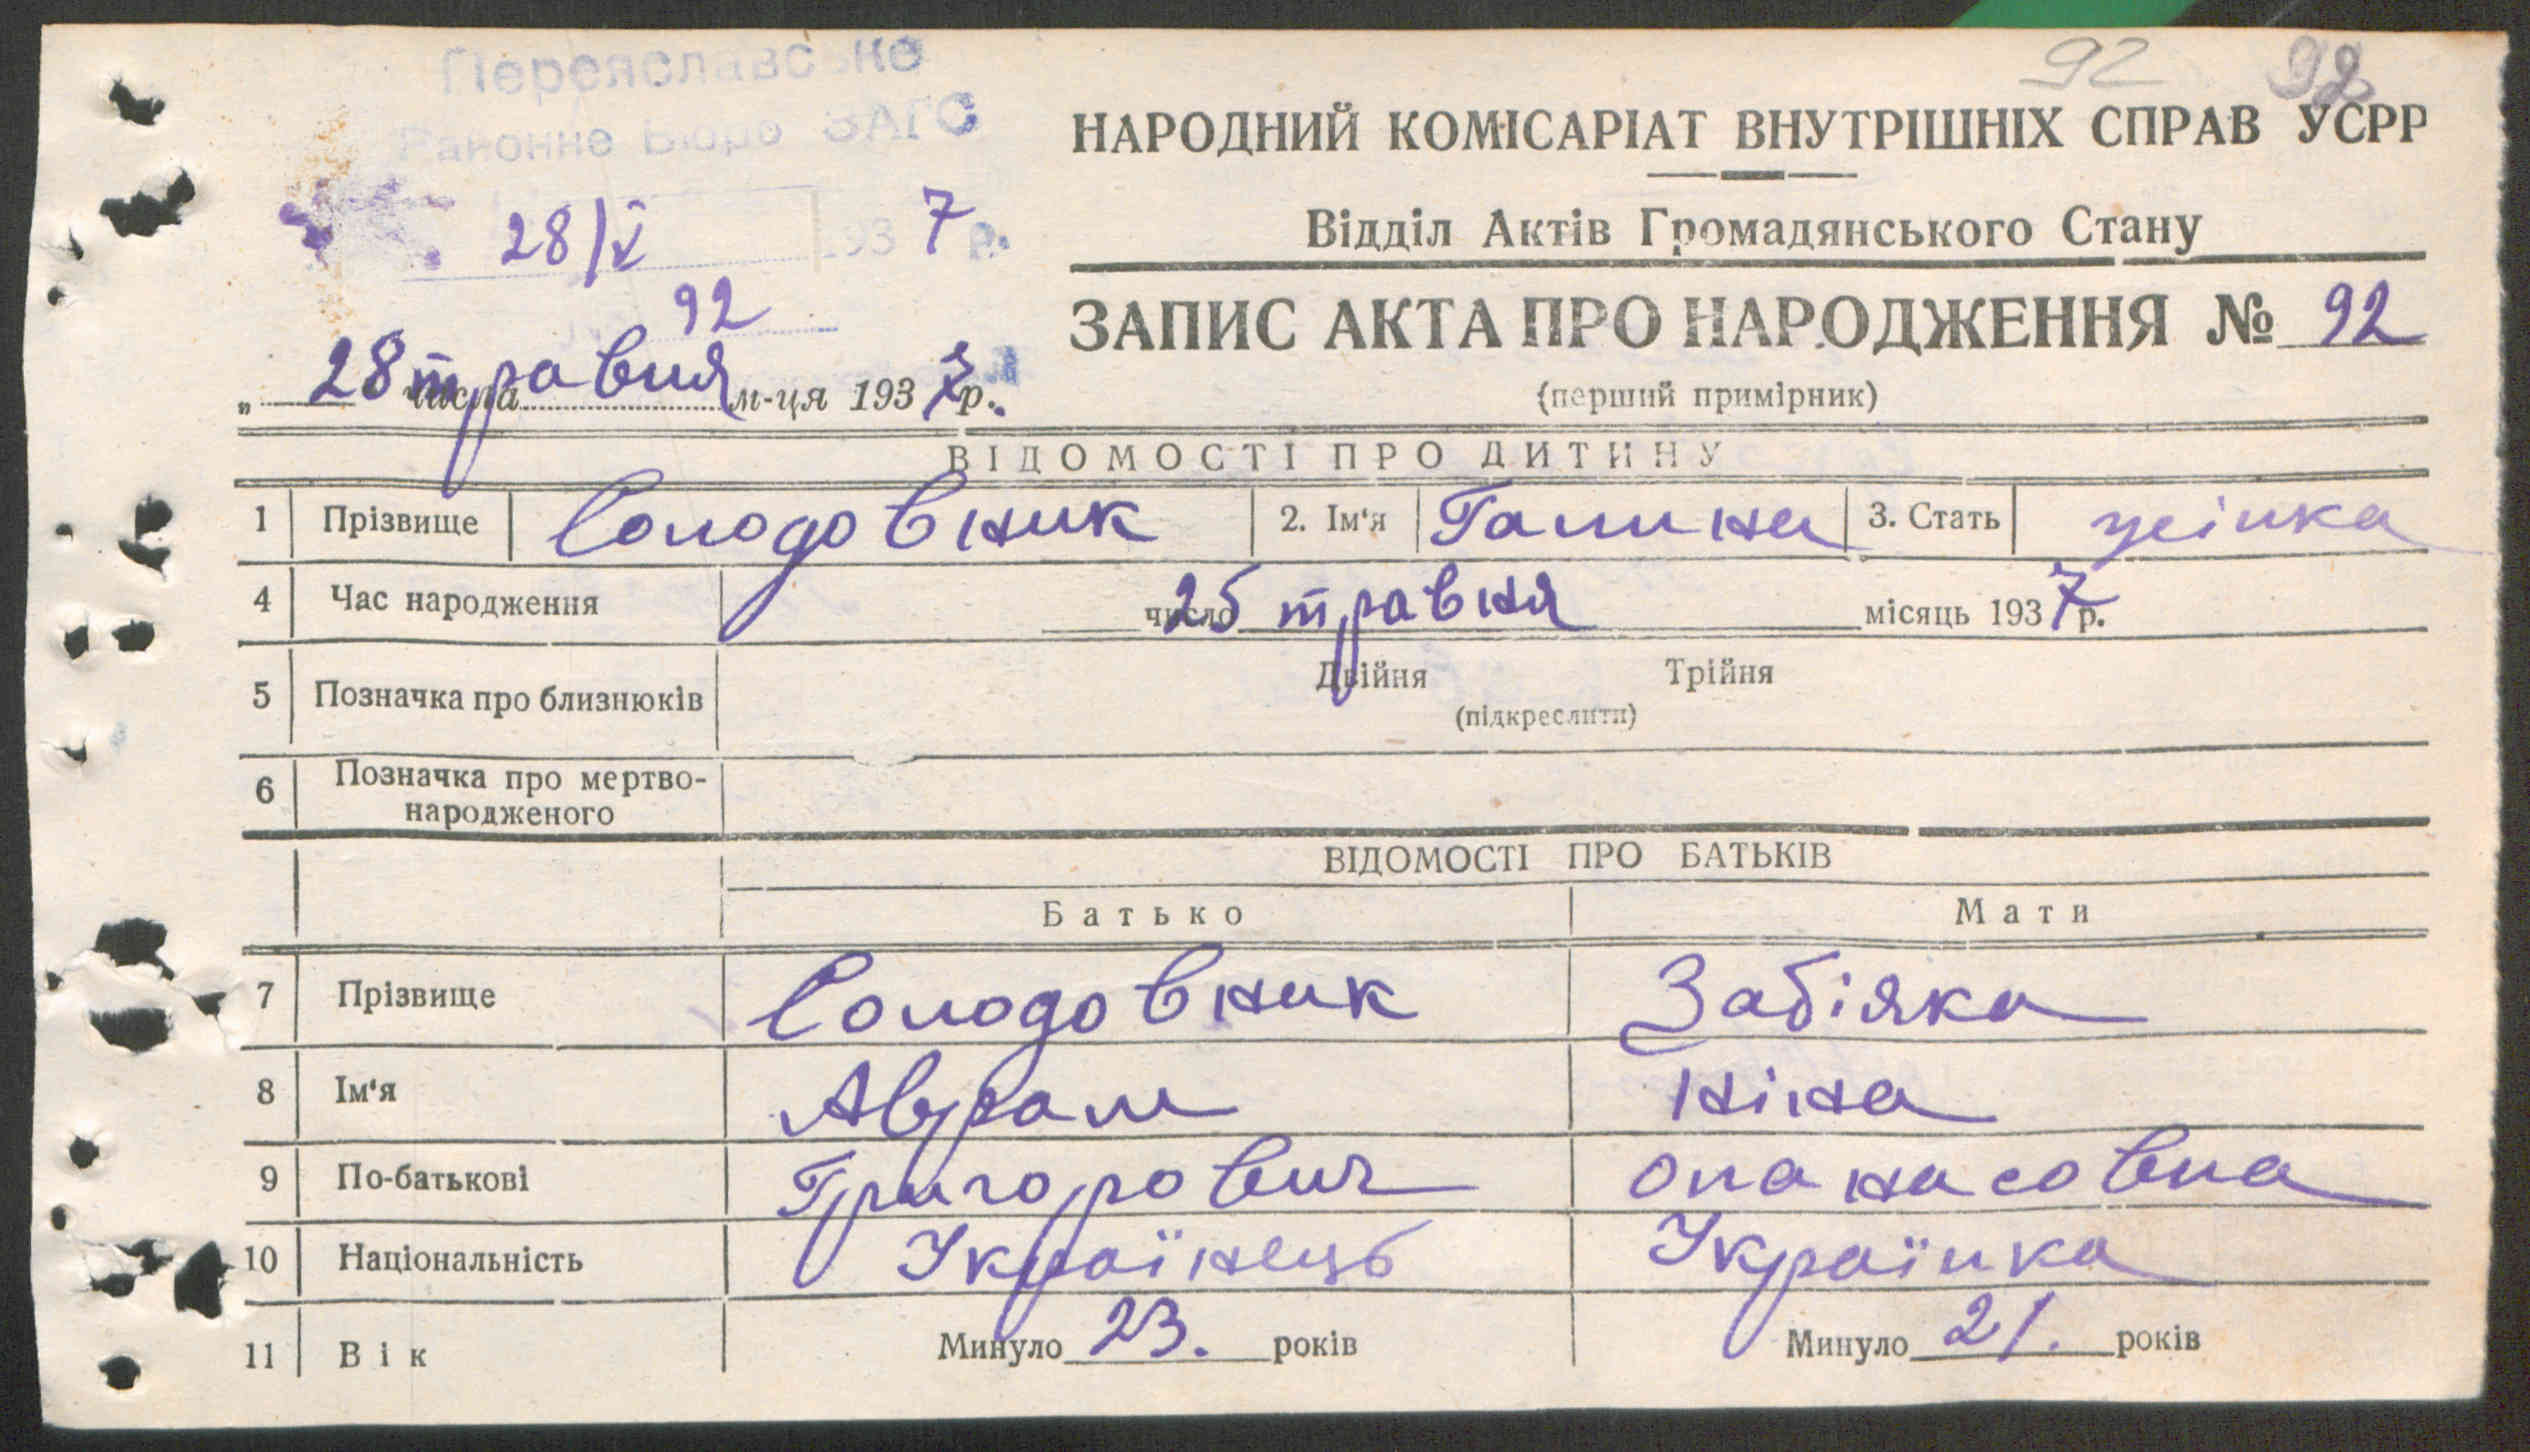 92 92
Переяславське
Районне Бюро ЗАГС
28/V 1937 р.
92
„ 28 числа травня м-ця 1937 р.
НАРОДНИЙ КОМІСАРІАТ ВНУТРІШНІХ СПРАВ УСРР
Відділ Актів Громадянського Стану
ЗАПИС АКТА ПРО НАРОДЖЕННЯ № 92
(перший примірник)
ВІДОМОСТІ ПРО ДИТИНУ
1 Прізвище Солодовник 2. Ім'я Галина 3. Стать жінка
4 Час народження число 25 травня місяць 1937 р.
5 Позначка про близнюків Двійня Трійня
(підкреслити)
6 Позначка про мертво-
народженого
ВІДОМОСТІ ПРО БАТЬКІВ
Батько Мати
7 Прізвище Солодовник Забіяка
8 Ім'я Аврам Ніна
9 По-батькові Григорович Опанасовна
10 Національність Українець Українка
11 Вік Минуло 23. років Минуло 21. років